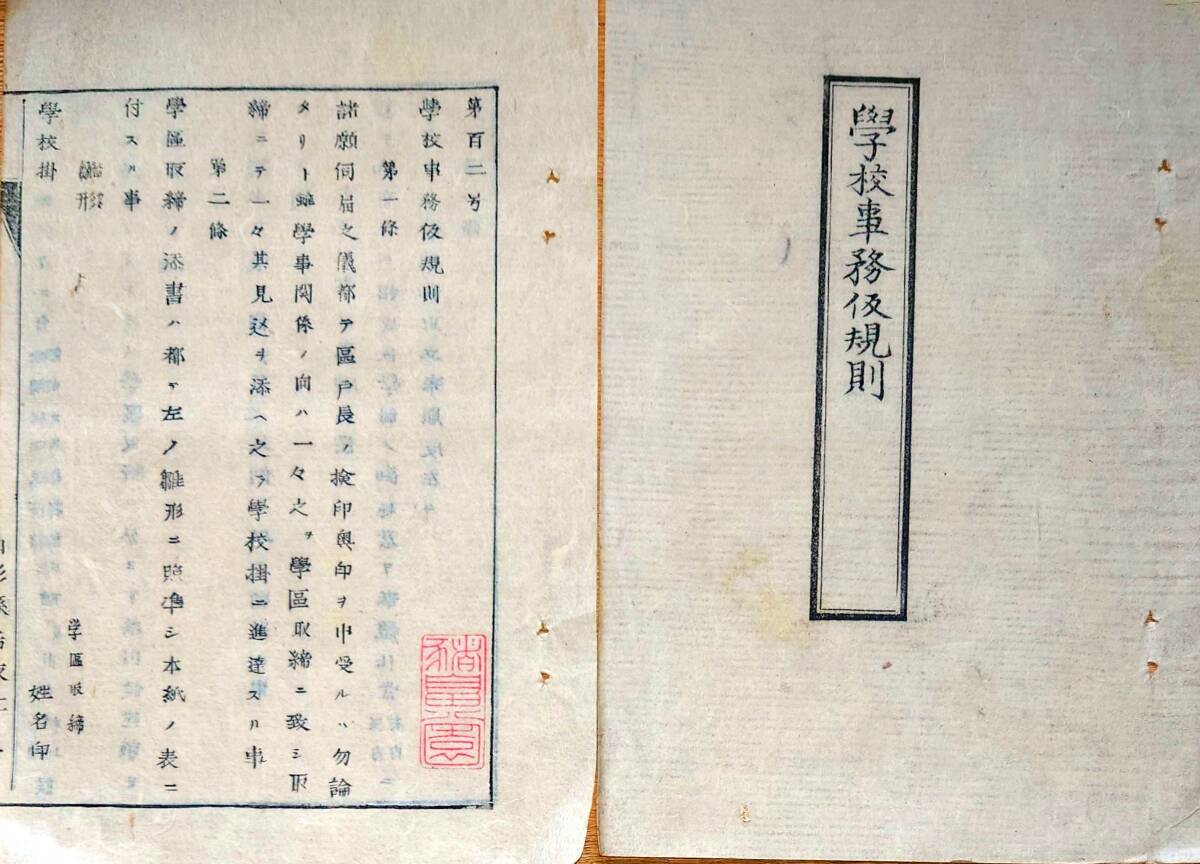 學校事務仮規則
第百二号
學校事務仮規則
第一條
諸願伺届之儀都テ區戸長ノ検印奥印ヲ申受ルハ勿論
タリト雖學事関係ノ向ハ一々之ヲ學區取締ニ致シ取
締ニテ一々其見込ヲ添ヘ之ヲ學校掛ニ進達スル事
第二條
學區取締ノ添書ハ都テ左ノ雛形ニ照準シ本紙ノ表ニ
付スル事
雛形
学區取締
學校掛
姓名印